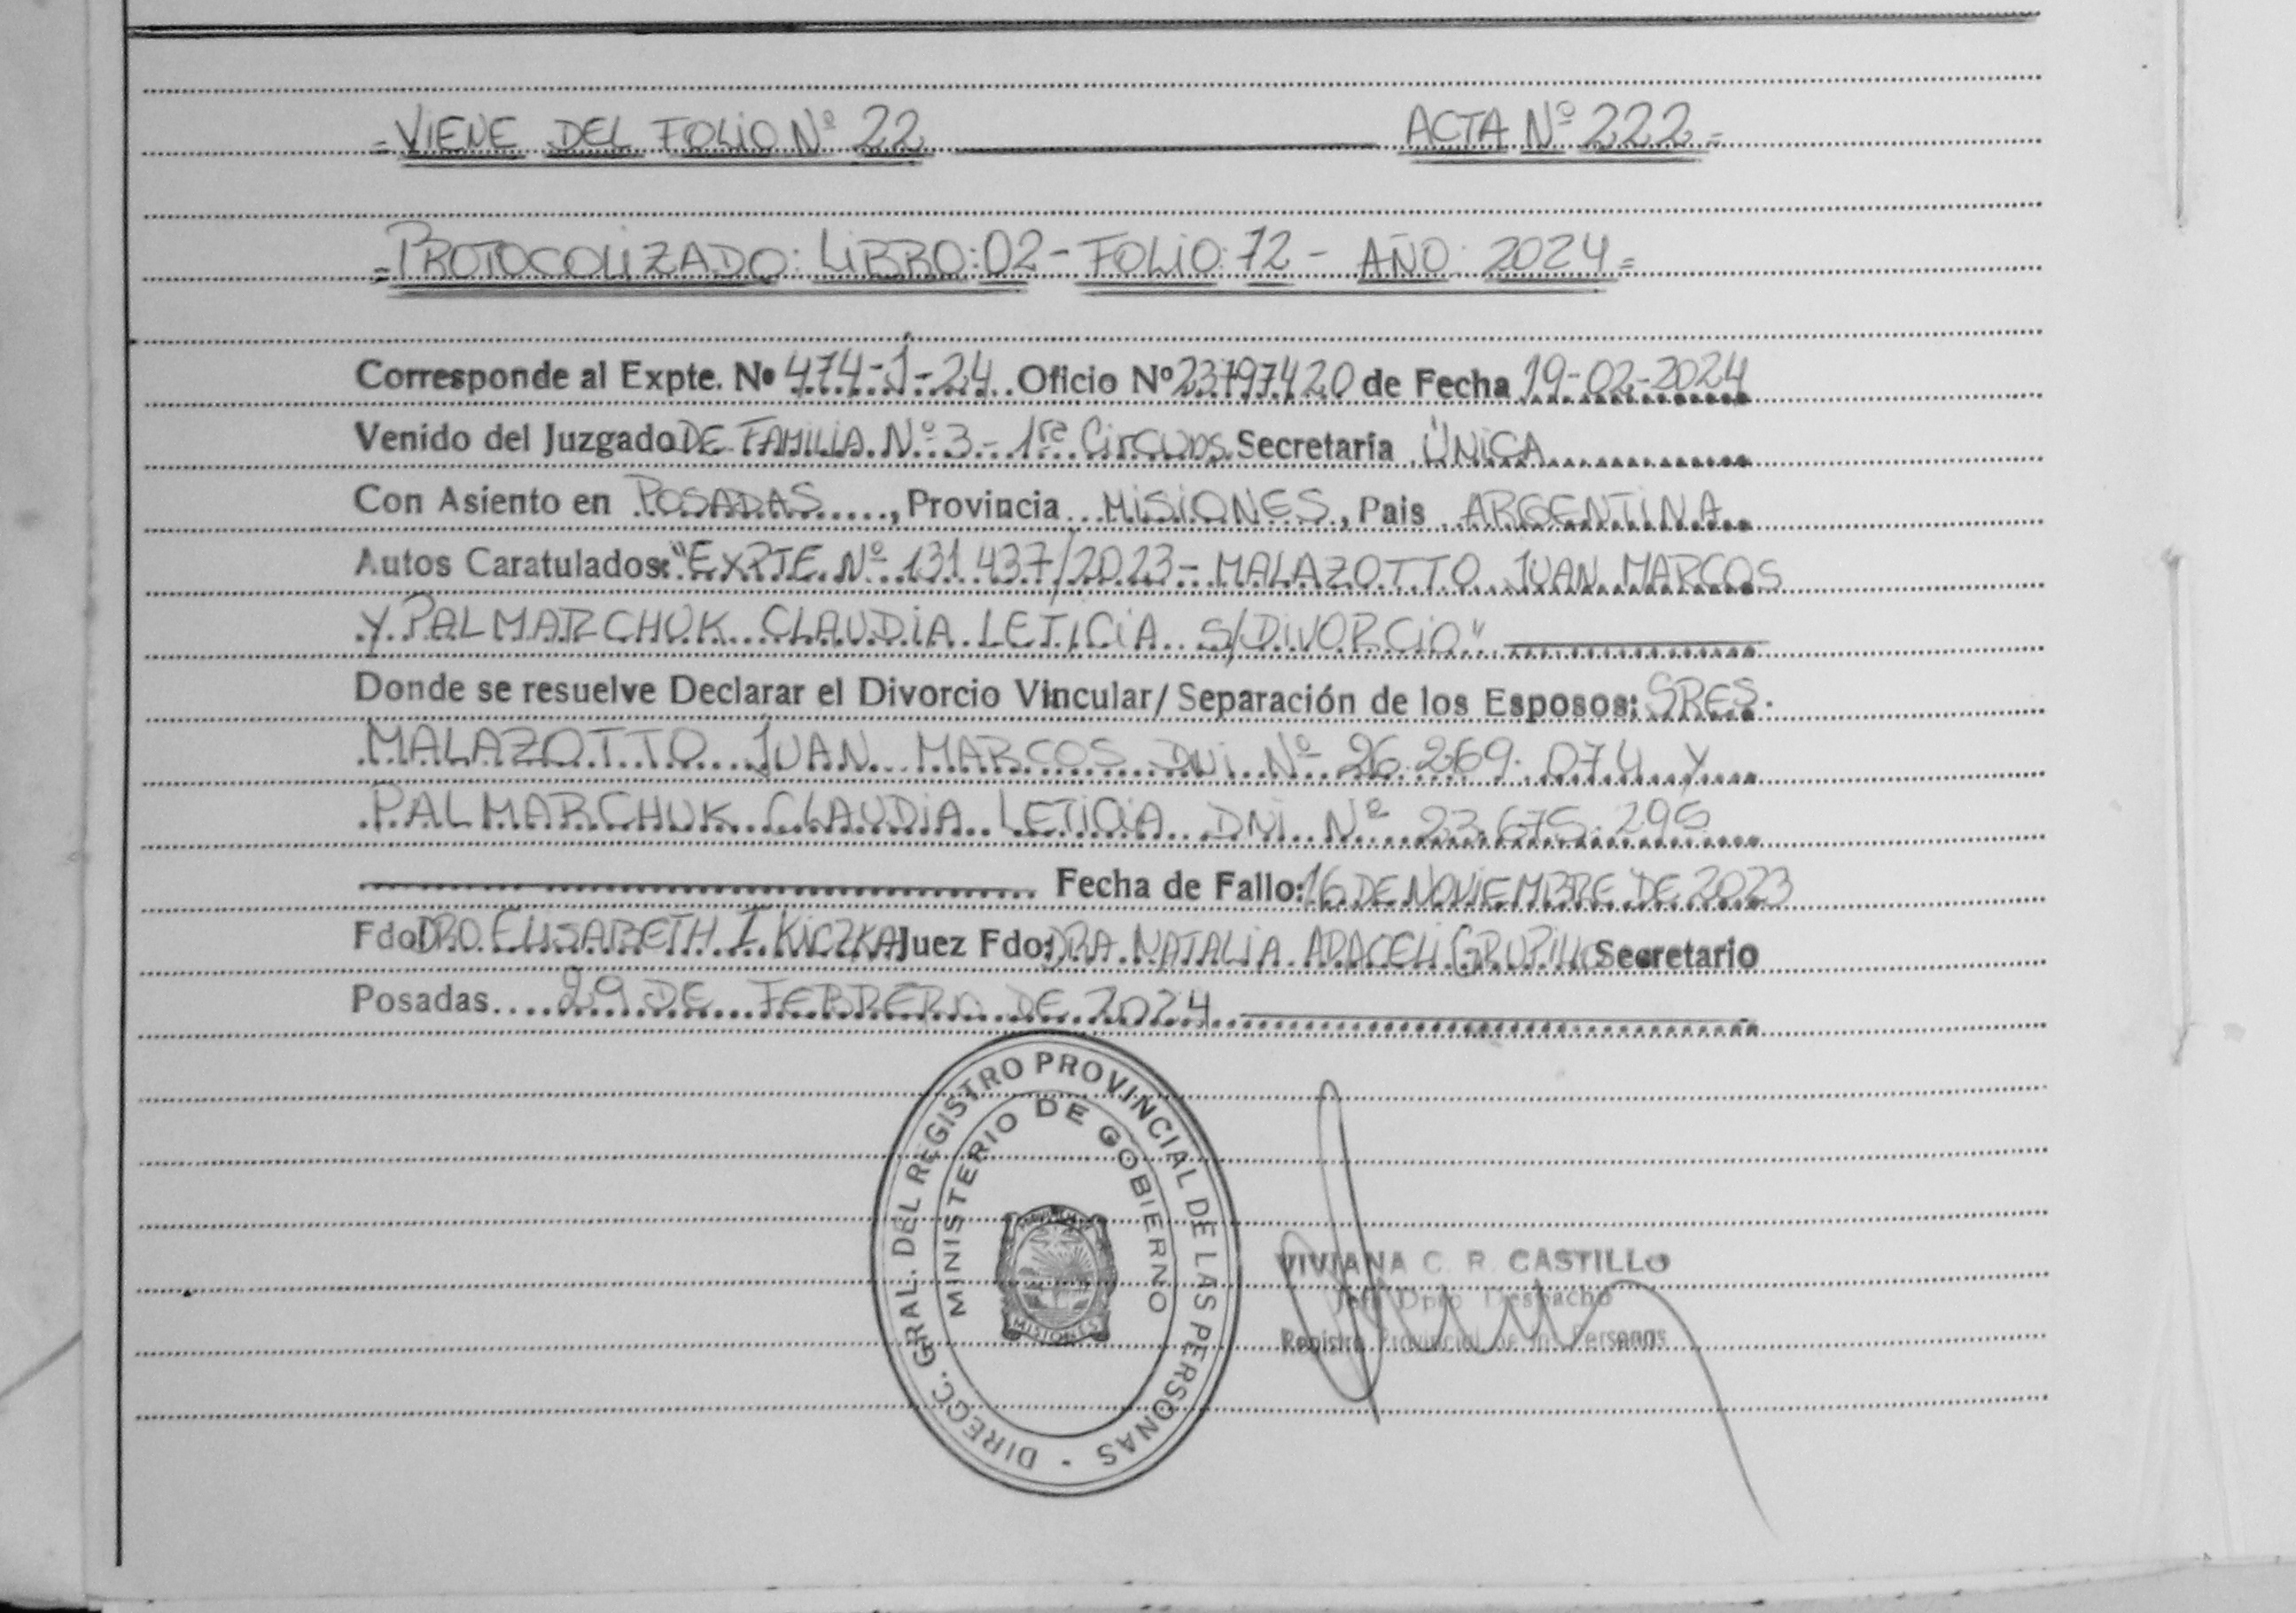 =VIENE DEL FOLIO Nº 22 ACTA Nº 222=
=PROTOCOLIZADO: LIBRO: 02 - FOLIO: 72 - AÑO: 2024=
Corresponde al Expte. Nº 474-J-24 Oficio Nº 23797420 de Fecha 19-02-2024
Venido del Juzgado DE FAMILIA Nº 3 - 1ra Circuns. Secretaría ÚNICA
Con Asiento en POSADAS, Provincia MISIONES, Pais ARGENTINA
Autos Caratulados: "EXPTE Nº 131.437/2023 - MALAZOTTO JUAN MARCOS
Y PALMARCHUK CLAUDIA LETICIA S/DIVORCIO"
Donde se resuelve Declarar el Divorcio Vincular/ Separación de los Esposos: SRES.
MALAZOTTO JUAN MARCOS DNI Nº 26.269.074 Y
PALMARCHUK CLAUDIA LETICIA DNI Nº 23.675.295
Fecha de Fallo: 16 DE NOVIEMBRE DE 2023
Fdo ELISABETH I. KICZKA Juez Fdo: DRA. NATALIA ARACELI Secretario
Posadas 29 DE FEBRERO DE 2024
DIRECC. GRAL. DEL REGISTRO PROVINCIAL DE LAS PERSONAS -
MINISTERIO DE GOBIERNO
MISIONES
VIVIANA C. R. CASTILLO
Jefe Dpto Despacho
Registro Provincial de las Personas